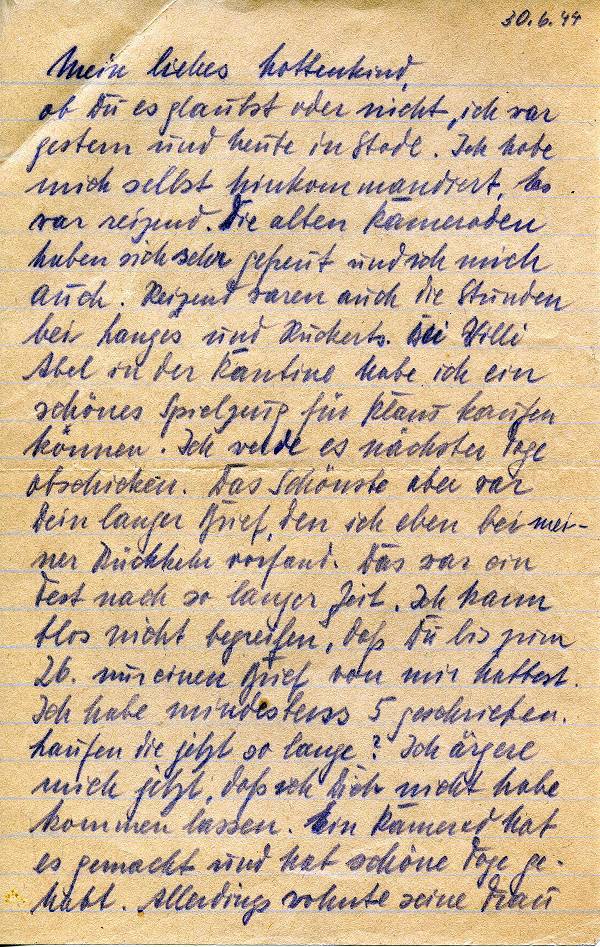 30.6.44
Mein liebes Mottenkind,
ob Du es glaubst oder nicht, ich war
gestern und heute in Stade. Ich habe
mich selbst hinkommandiert. Es
war reizend. Die alten Kameraden
haben sich sehr gefreut und ich mich
auch. Reizend waren auch die Stunden
bei Langes und Ruckerts. Bei Willi
Abel in der Kantine habe ich ein
schönes Spielzeug für Klaus kaufen
können. Ich werde es nächster Tage
abschicken. Das Schönste aber war
Dein langer Brief, den ich eben bei mei-
ner Rückkehr vorfand. Das war ein
Fest nach so langer Zeit. Ich kann
blos nicht begreifen, daß Du bis zum
26. nur einen Brief von mir hattest.
Ich habe mindestens 5 geschrieben.
Laufen die jetzt so lange? Ich ärgere
mich jetzt, daß ich Dich nicht habe
kommen lassen. Ein Kamerad hat
es gemacht und hat schöne Tage ge-
habt. Allerdings wohnte seine Frau